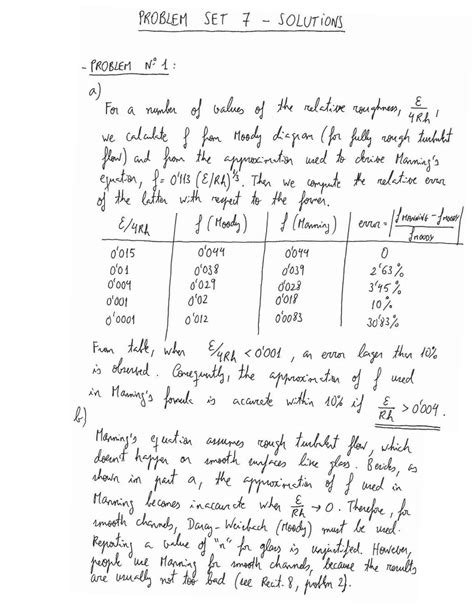 PROBLEM SET 7 – SOLUTIONS
- PROBLEM Nº 1 :
a)
For a number of values of the relative roughness, ε/4Rh,
we calculate f from Moody diagram (for fully rough turbulent
flow) and from the approximation used to derive Manning's
equation, f = 0'113 (ε/Rh)^1/3. Then we compute the relative error
of the latter with respect to the former.
ε/4Rh | f (Moody) | f (Manning) | error = |f MANNING - f MOODY / f MOODY|
0'015 | 0'044 | 0'044 | 0
0'01 | 0'038 | 0'039 | 2'63%
0'004 | 0'029 | 0'028 | 3'45%
0'001 | 0'02 | 0'018 | 10%
0'0001 | 0'012 | 0'0083 | 30'83%
From table, when ε/4Rh < 0'001, an error larger than 10%
is observed. Consequently, the approximation of f used
in Manning's formula is accurate within 10% if ε/Rh > 0'004.
b)
Manning's equation assumes rough turbulent flow, which
doesn't happen on smooth surfaces like glass. Besides, as
shown in part a, the approximation of f used in
Manning becomes inaccurate when ε/Rh → 0. Therefore, for
smooth channels, Darcy-Weisbach (Moody) must be used.
Reporting a value of "n" for glass is unjustified. However,
people use Manning for smooth channels, because the results
are usually not too bad (see Recit. 8, problem 2).